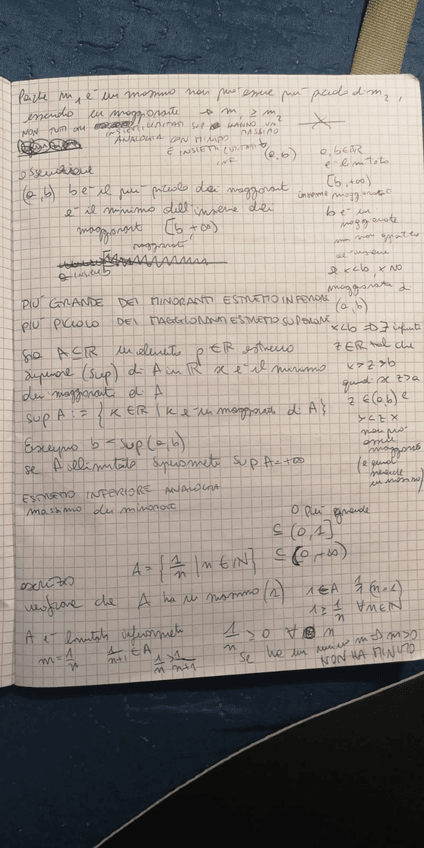 Poiché m₁ è un massimo non può essere più piccolo di m₂,
essendo un maggiorante → m₁ ≥ m₂
NON TUTTI GLI INSIEMI LIMITATI SUP HANNO UN MASSIMO
ANALOGIA CON MINIMO
E INSIEMI LIMITATI INF
(a,b) a,b∈R
è limitato
osservazione
(a,b) b è il più piccolo dei maggioranti
è il minimo dell'insieme dei
maggioranti [b +∞)
[b,+∞)
insieme maggioranti
b è un
maggiorante
ma non appartiene
all'insieme
se x<b, x NO
maggiorante di
(a,b)
PIÙ GRANDE DEI MINORANTI ESTREMO INFERIORE
PIÙ PICCOLO DEI MAGGIORANTI ESTREMO SUPERIORE
x<b ⇒ ∃ infiniti
z∈R tali che
x>z>b
quindi x z>a
z∈(a,b) e
non può
essere
maggiorante
(e quindi
nemmeno
un massimo)
Sia A⊆R un elemento ρ∈R estremo
superiore (sup) di A in R se è il minimo
dei maggioranti di A
sup A := {x∈R | x è un maggiorante di A}
Esempio b = sup(a,b)
se A illimitato superiormente sup A=+∞
ESTREMO INFERIORE ANALOGIA
massimo dei minoranti
0 più grande
⊆ (0,1]
A = {1/n | n∈N} ⊆ (0,+∞)
esercizio
verificare che A ha un massimo (1)
1∈A 1/1 (n=1)
1≥1/n ∀n∈N
A è limitato inferiormente
1/n > 0 ∀ n
m=1/n 1/n+1 ∈A 1/n>1/n+1
Se ha un minimo m ⇒ m>0
NON HA MINIMO